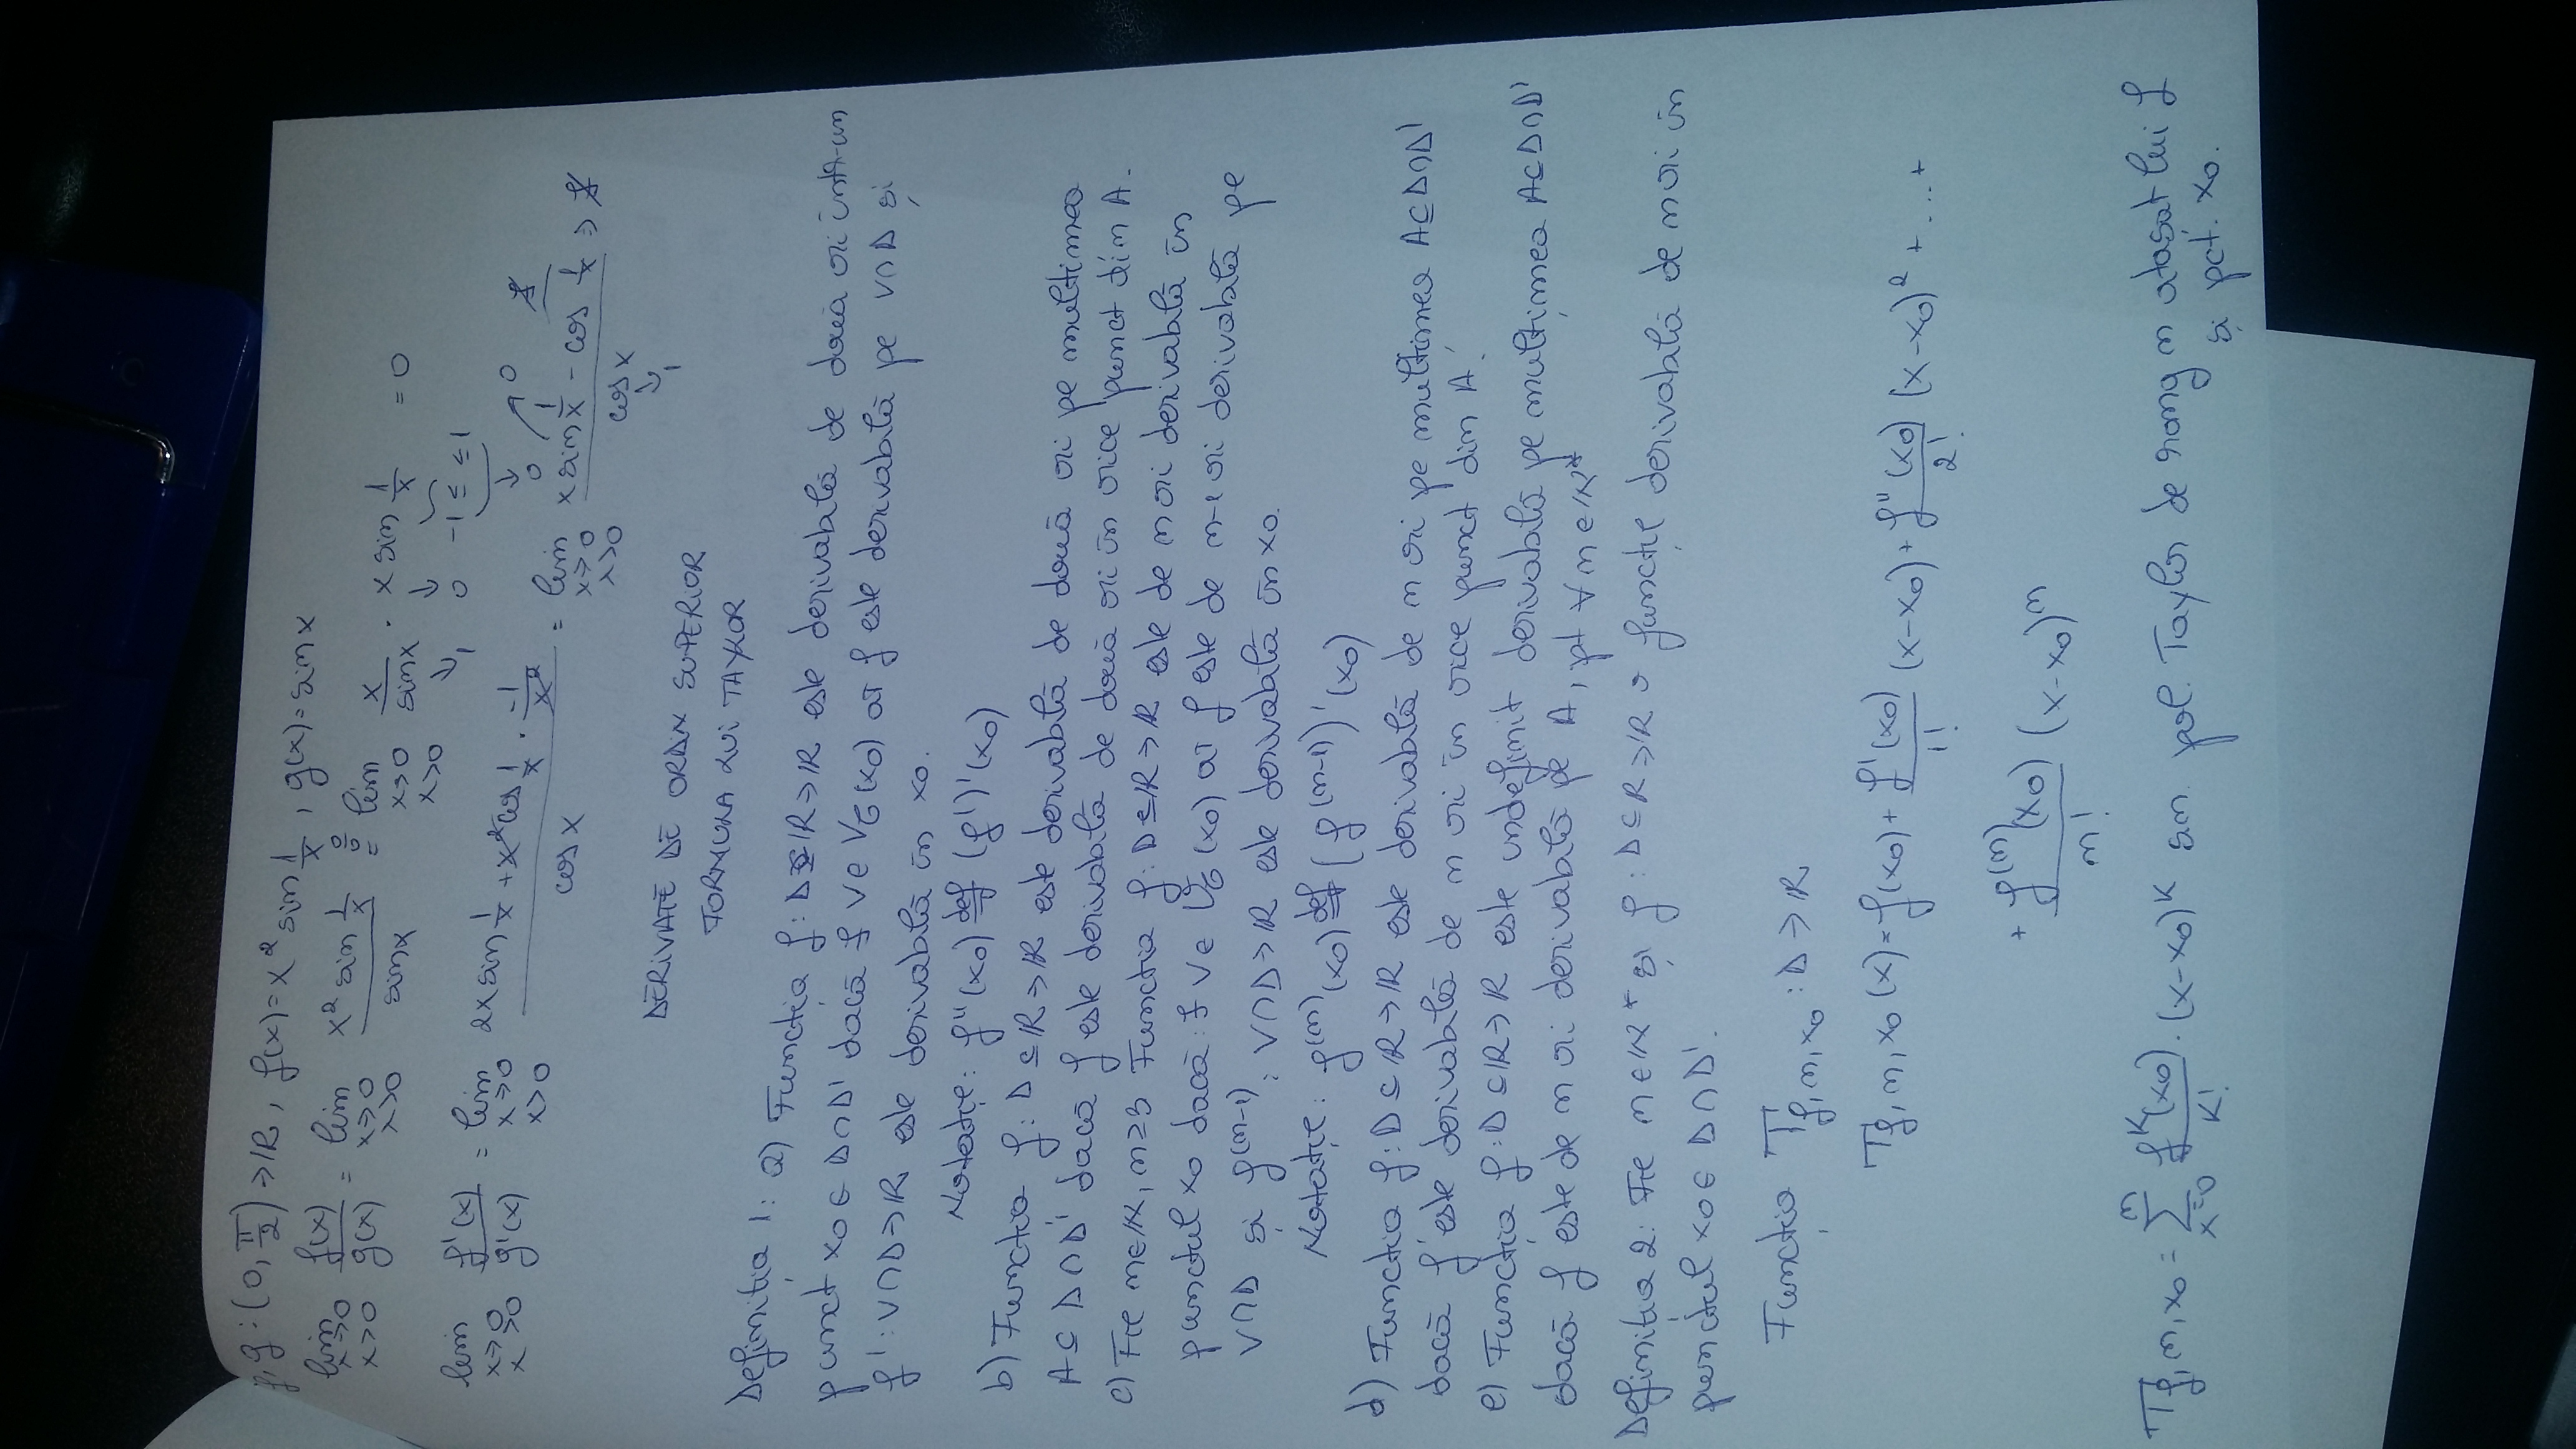 f, g : (0, π/2) → ℝ, f(x) = x² sin 1/x, g(x) = sin x
lim x→0 x>0 f(x)/g(x) = lim x→0 x>0 (x² sin 1/x)/(sin x) 0/0 = lim x→0 x>0 x/(sin x) · x sin 1/x = 0
↓ 1 ↓ 0 -1 ≤ ≤ 1
lim x→0 x>0 f'(x)/g'(x) = lim x→0 x>0 (2x sin 1/x + x² cos 1/x · -1/x²)/(cos x) = lim x→0 x>0 (x sin 1/x - cos 1/x)/(cos x) ⇒ ∄
↓ 0 0 ∄
↓ 1
DERIVATE DE ORDIN SUPERIOR
FORMULA LUI TAYLOR
Definiția 1: a) Funcția f : D ⊆ ℝ → ℝ este derivabilă de două ori într-un
punct x0 ∈ D ∩ D' dacă ∃ V ∈ V(x0) aî f este derivabilă pe V ∩ D și
f' : V ∩ D → ℝ este derivabilă în x0.
Notație: f''(x0) def= (f')'(x0)
b) Funcția f : D ⊆ ℝ → ℝ este derivabilă de două ori pe multimea
A ⊆ D ∩ D' dacă f este derivabilă de două ori în orice punct din A.
c) Fie n ∈ ℕ, n ≥ 3 Functia f : D ⊆ ℝ → ℝ este de n ori derivabilă în
punctul x0 dacă : ∃ V ∈ V(x0) aî f este de n-1 ori derivabilă pe
V ∩ D și f(n-1) : V ∩ D → ℝ este derivabilă în x0.
Notație : f(n)(x0) def= (f(n-1))'(x0)
d) Functia f : D ⊆ ℝ → ℝ este derivabilă de n ori pe multimea A ⊆ D ∩ D'
dacă f este derivabilă de n ori în orice punct din A.
e) Funcția f : D ⊆ ℝ → ℝ este indefinit derivabilă pe mulțimea A ⊂ D ∩ D'
dacă f este de n ori derivabilă pe A, pt ∀ n ∈ ℕ*
Definiția 2: Fie n ∈ ℕ* și f : D ⊆ ℝ → ℝ o funcție derivabilă de n ori în
punctul x0 ∈ D ∩ D'.
Funcția T f,n,x0 : D → ℝ
T f,n,x0 (x) = f(x0) + f'(x0)/1! (x-x0) + f''(x0)/2! (x-x0)² + ... +
+ f(n)(x0)/n! (x-x0)ⁿ
T f,n,x0 = Σ n x=0 fᵏ(x0)/k! · (x-x0)ᵏ sn. pol. Taylor de rang n atașat lui f
și pct. x0.